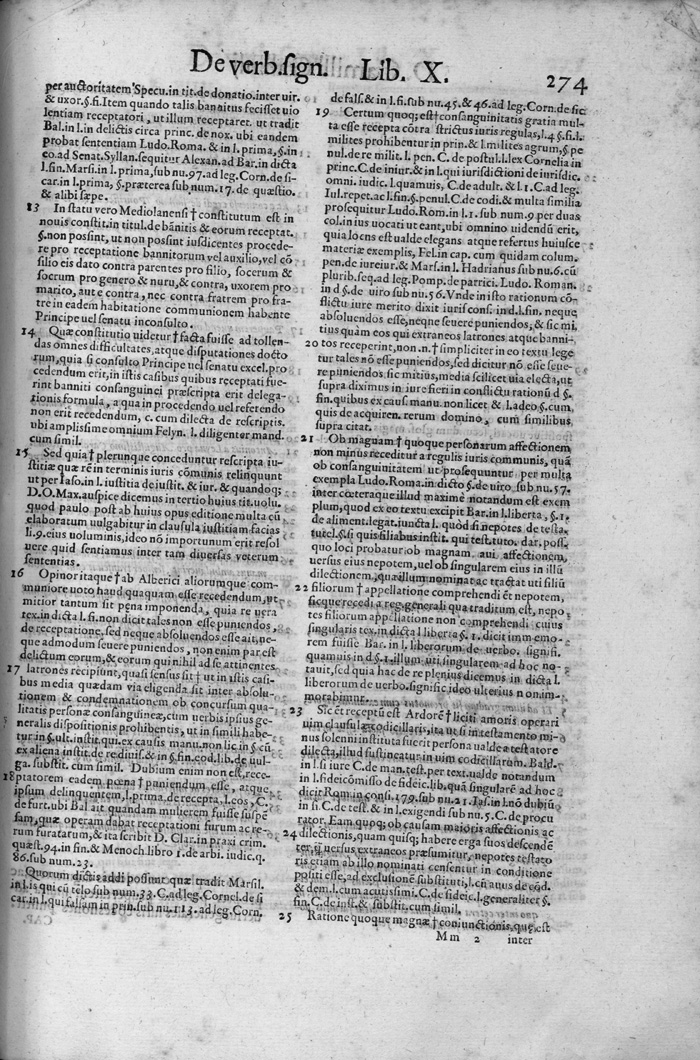 De verb.sign. Lib. X. 274
per auctoritatem Specu.in tit.de donatio.inter uir.
& uxor.§.fi.Item quando talis bannitus fecisset uio
lentiam receptatori, ut illum receptaret. ut tradit
Bal.in l.in delictis circa princ.de nox. ubi eandem
probat sententiam Ludo.Roma. & in l.prima, §.in
co.ad Senat.Syllan.sequitur Alexan.ad Bar.in dicta
l.fin.Marsi.in l.prima, sub nu.97.ad leg.Corn.de si-
car.in l.prima, §.præterea sub num. 17. de quæstio.
& alibi sæpe.
13 In statu vero Mediolanensi † constitutum est in
nouis constit.in titul.de bānitis & eorum receptat.
§.non possint, ut non possint iusdicentes procede-
re pro receptatione bannitorum vel auxilio, vel cō
silio eis dato contra parentes pro filio, socerum &
socrum pro genero & nuru, & contra, uxorem pro
marito, aut e contra, nec contra fratrem pro fra-
tre in eadem habitatione communionem habente
Principe uel senatu inconsulto.
14 Quæ constitutio uidetur † facta fuisse ad tollen-
das omnes difficultates, atque disputationes docto
rum, quia si consulto Principe uel senatu excel.pro
cedendum erit, in istis casibus quibus receptati fue-
rint banniti consanguinei præscripta erit delega-
tionis formula, a qua in procedendo uel referendo
non erit recedendum, c. cum dilecta de rescriptis.
ubi amplissime omnium Felyn. l. diligenter mand.
cum simil.
15 Sed quia † plerunque conceduntur rescripta iu-
stitiæ quæ rē in terminis iuris cōmunis relinquunt
ut per Iaso.in l. iustitia de iustit. & iur. & quandoq;
D.O.Max.auspice dicemus in tertio huius tit.uolu.
quod paulo post ab huius opus editione multa cū
elaboratum uulgabitur in clausula iustitiam facias
li.9.eius uoluminis, ideo nō importunum erit resol
uere quid sentiamus inter tam diuersas veterum
sententias.
16 Opinor itaque † ab Alberici aliorumque com-
muniore uoto haud quaquam esse recedendum, ut
mitior tantum sit pœna imponenda, quia re uera
tex.in dicta l.fi.non dicit tales non esse puniendos,
de receptatione, sed neque absoluendos esse ait, ne-
que admodum seuere puniendos, non enim par est
delictum eorum, & eorum qui nihil ad se attinentes
17 latrones recipiunt, quasi sensus sit † ut in istis casi-
bus media quædam via eligenda sit inter absolu-
tionem & condemnationem ob concursum qua-
litatis personæ consanguineæ, cum uerbis ipsius ge-
neralis dispositionis prohibentis, ut in simili habe-
tur in §.ult.instit.qui.ex causis manu.non lic.in §.cū
ex aliena instit.de rediuis. & in §.fin.cod.lib.de uul-
ga. substit. cum simil. Dubium enim non est, rece-
18 ptatorem eadem pœna † puniendum esse, atque
ipsum delinquentem, l.prima.de recepta.l.eos, C.
de furt.ubi Bal ait quandam mulierem fuisse suspē
sam, quæ operam dabat receptationi furum ac re-
rum furatarum, & ita scribit D. Clar.in praxi crim.
quæst.94.in fin.& Menoch.libro 1.de arbi.iudic.q.
86.sub num.23.
Quorum dictis addi possunt quæ tradit Marsil.
in l.is qui cū telo sub num.33.C.ad leg.Cornel.de si
car.in l.qui falsam in prin.sub nu.113.ad leg.Corn.
de fals.& in l.fi.sub nu.45.& 46.ad leg.Corn.de sic
19 Certum quoq; est † consanguinitatis gratia mul-
ta esse recepta cōtra strictus iuris regulas, l.4 §.fi.l.
milites prohibentur in prin.& l.milites agrum, § pe
nul.de re milit.l. pen. C. de postul.l.lex Cornelia in
princ.C.de iniur.& in l.qui iurisdictioni de iurisdic.
omni.iudic.l.quamuis, C.de adult.& l.1.C.ad leg.
Iul.repet.ac l.fin.§.penul.C.de codi.& multa similia
prosequitur Ludo.Rom.in l.1.sub num.9.per duas
col.in ius uocati ut eant, ubi omnino uidendū erit,
quia locus est ualde elegans atque refertus huiusce
materiæ exemplis, Felin cap. cum quidam colum.
pen.de iureiur.& Mars.in l. Hadrianus sub nu.6.cū
plurib.seq.ad leg.Pomp.de patrici. Ludo. Roman.
in d §.de uiro sub nu.56.Vnde in isto rationum cō-
flictu iure merito dixit iuriscons.in d.l.fin. neque
absoluendos esse, neque seuere puniendos, & sic mi,
tius quàm eos qui extraneos latrones atque banni-
20 tos receperint, non.n. † simpliciter in eo textu lege
tur tales nō esse puniendos, sed dicitur nō esse seue-
re puniendos sic mitius, media scilicet uia electa, ut
supra diximus in iure fieri in conflictu rationū d §.
fin.quibus ex caus.manu.non licet & Ladeo §.cum,
quis de acquiren. rerum domino, cum similibus,
supra citat.
21 Ob magnam † quoque personarum affectionem
non minus receditur a regulis iuris communis, quā
ob consanguinitatem ut prosequuntur per multa
exempla Ludo.Roma.in dicto §.de uiro, sub nu.57.
inter cœteraque illud maxime notandum est exem
plum, quod ex eo textu excipit Bar.in l.liberta, §.1.
de aliment.legat.iuncta l. quòd si nepotes de testa.
tutel.§.si quis filiabus instit. qui test.tuto. dar. poss.
quo loci probatur ob magnam aui affectionem
uersus eius nepotem, uel ob singularem eius in illū
dilectionem, quā illum nominat ac tractat uti filiū
22 filiorum † appellatione comprehendi et nepotem,
sicque recedi a reg.generali qua traditum est, nepo
tes filiorum appellatione non comprehendi cuius
singularis tex.in dicta l liberta §.1. dicit immemo-
rem fuisse Bar. in l. liberorum de uerbo. signifi.
quamuis in d §.1.illum uti singularem ad hoc no-
tauit, sed quia hac de re plenius dicemus in dicta l.
liberorum de uerbo.signific.ideo ulterius non im-
morabimur.
23 Sic et receptū est Ardorē † liciti amoris operari
uim clausulæ codicillaris, ita ut si in testamento mi-
nus solenni instituta fuerit persona ualde a testatore
dilecta, illud sustineatur in uim codicillarum. Bald.
in l.si iure C.de man.test.per text.ualde notandum
in l.fideicōmisso de fideic.lib.quā singularē ad hoc
dicit Rom.in cons.179.sub nu.21.Ias.in l.nō dubiū
in fi. C.de test.& in l.exigendi sub nu.5.C.de procu
rator. Eam quoq; ob causam maioris affectionis ac
24 dilectionis, quam quisq; habere erga suos descendē
ter, q; uersus extraneos præsumitur, nepotes testato
ris etiam ab illo nominati censentur in conditione
positi esse, ad exclusionē substituti, l.cū auus de cōd.
& dem.l.cum acutissimi.C.de fideic.l.generaliter §.
fin.C.de inst.& substit.cum simil.
25 Ratione quoque magnæ † coniunctionis, quæ est
Mm 2 inter